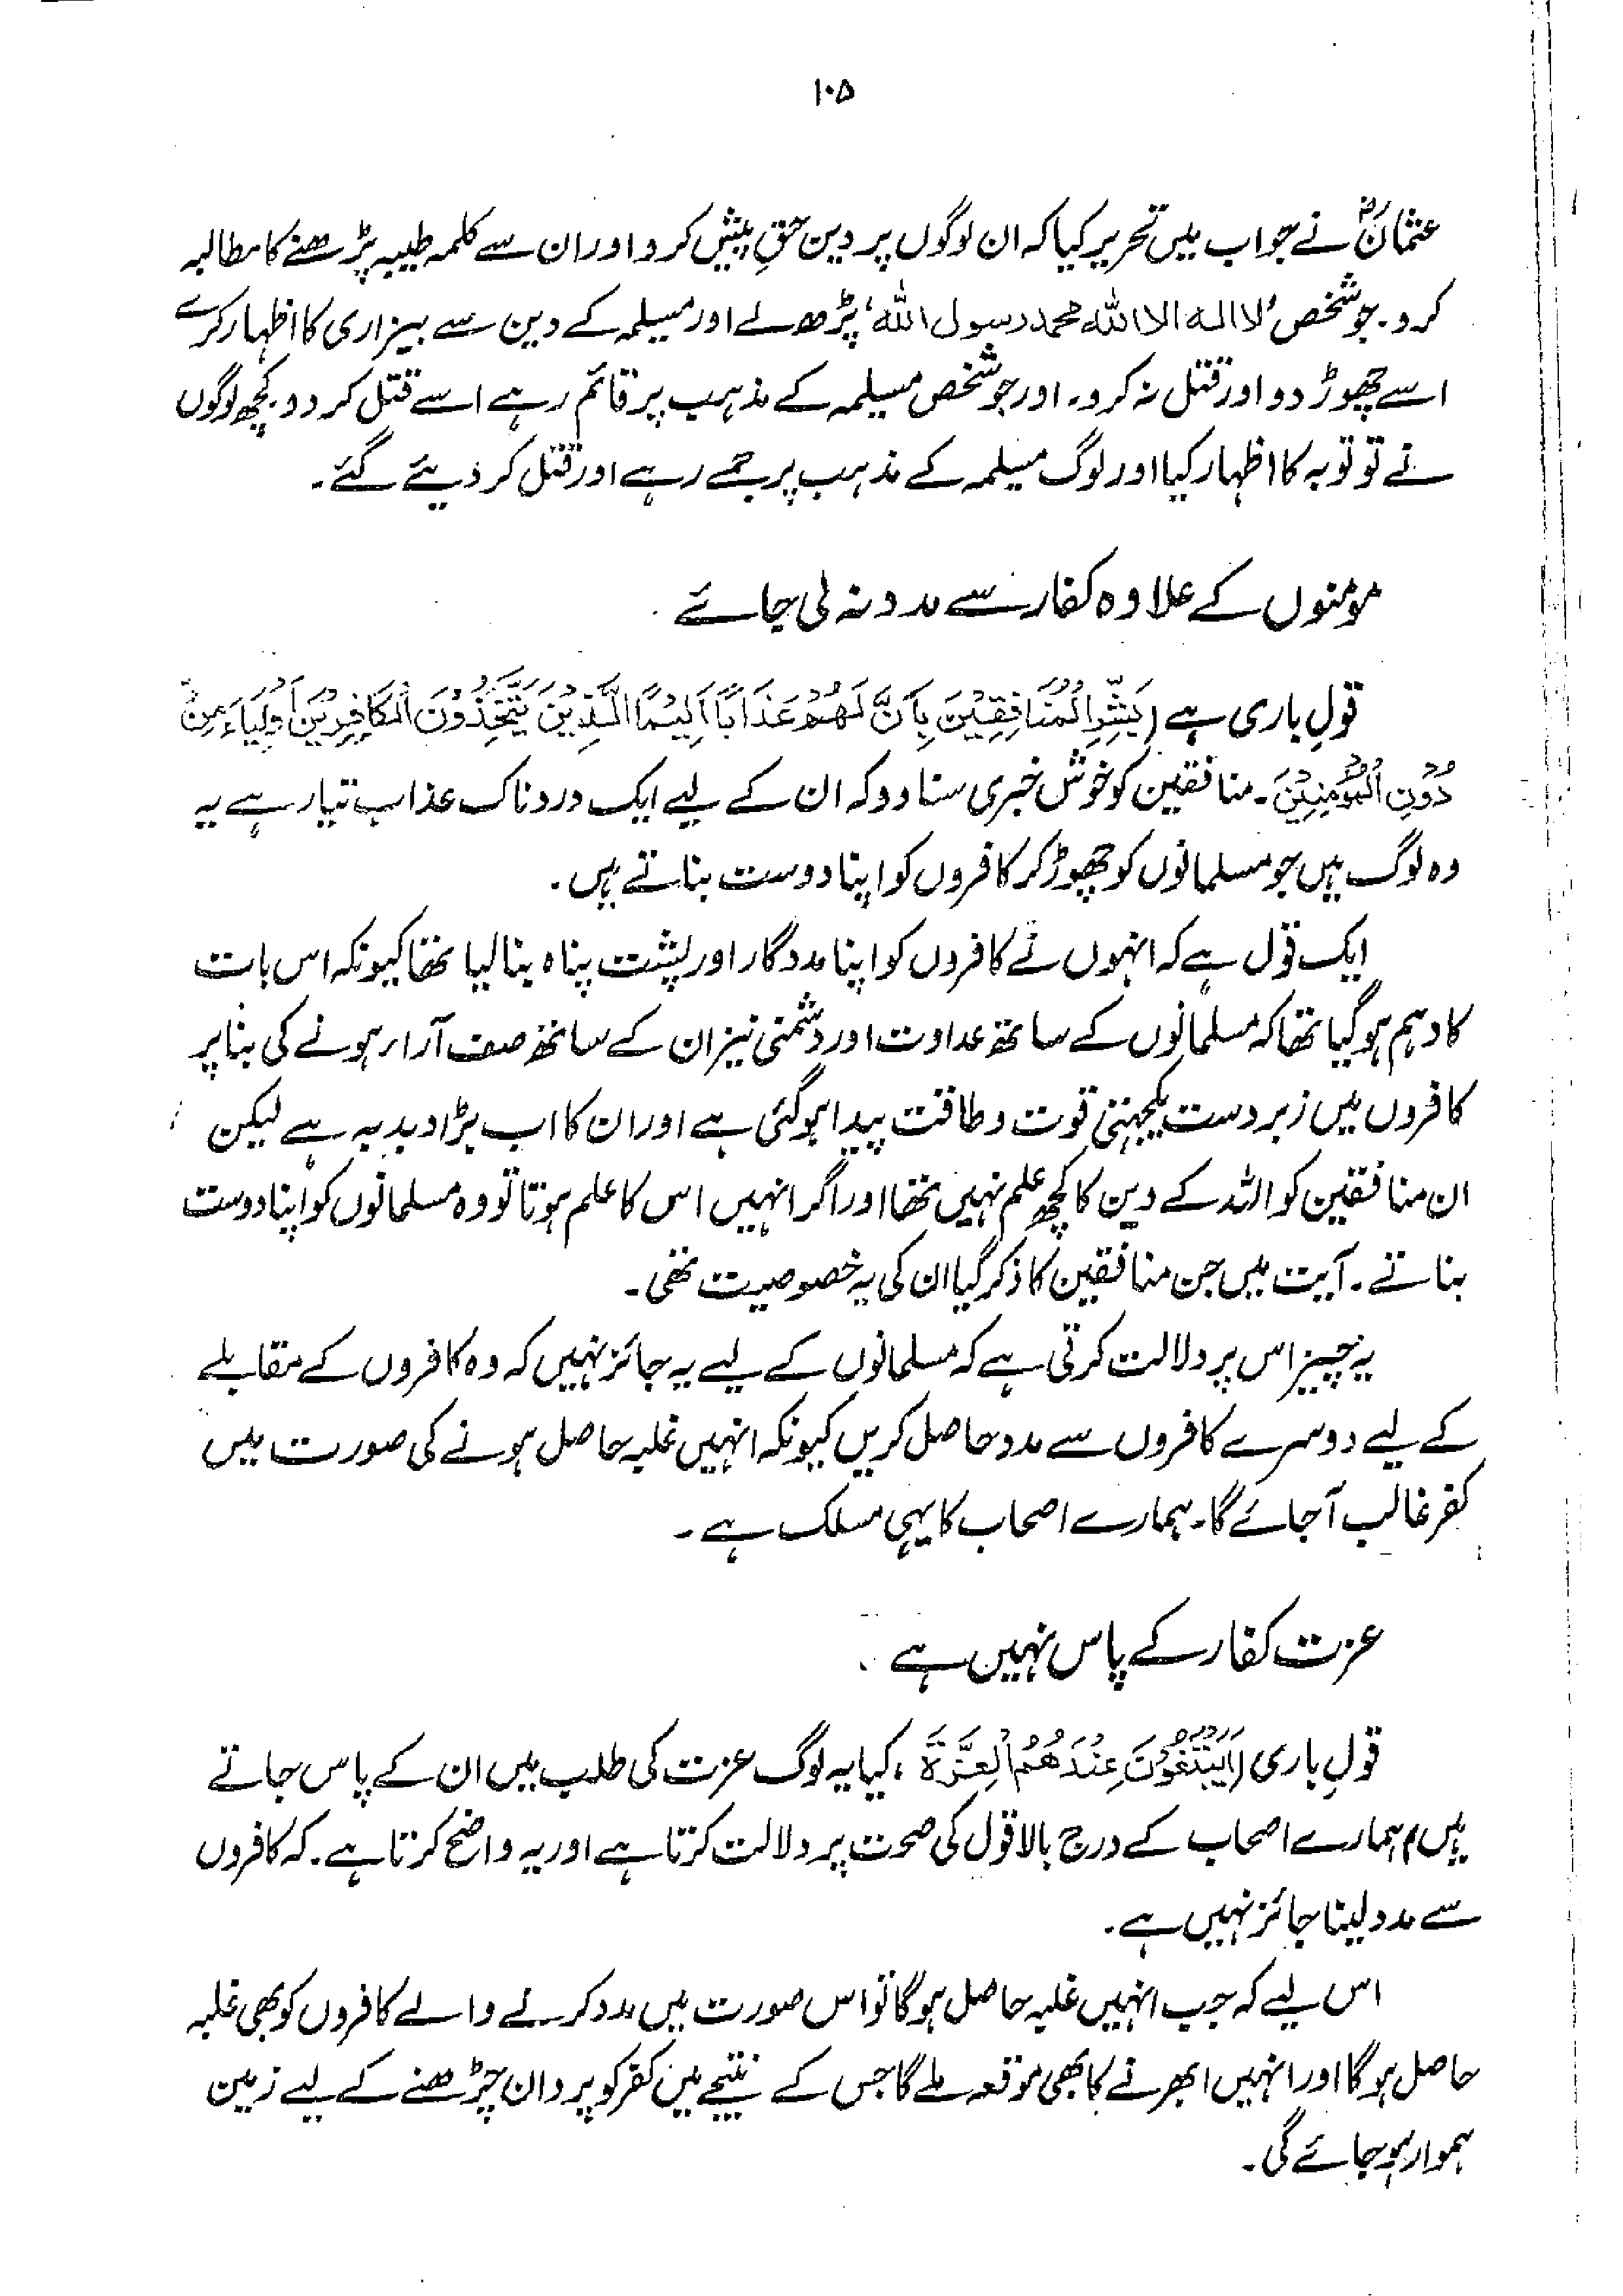 ۱۰۵
عثمانؓ نے جواب میں تحریر کیا کہ ان لوگوں پر دین حق پیش کرو اور ان سے کلمہ طیبہ پڑھنے کا مطالبہ
کرو۔ جو شخص ’لا الہ الا اللہ محمد رسول اللہ‘ پڑھ لے اور مسیلمہ کے دین سے بیزاری کا اظہار کرے
اسے چھوڑ دو اور قتل نہ کرو۔ اور جو شخص مسیلمہ کے مذہب پر قائم رہے اسے قتل کر دو۔ کچھ لوگوں
نے تو توبہ کا اظہار کیا اور لوگ مسیلمہ کے مذہب پر جمے رہے اور قتل کر دیئے گئے۔
مومنوں کے علاوہ کفار سے مدد نہ لی جائے
قولِ باری ہے (بَشِّرِ الْمُنَافِقِيْنَ بِاَنَّ لَهُمْ عَذَابًا اَلِيْمًا الَّذِيْنَ يَتَّخِذُوْنَ الْكَافِرِيْنَ اَوْلِيَاءَ مِنْ
دُوْنِ الْمُؤْمِنِيْنَ۔ منافقین کو خوش خبری سنا دو کہ ان کے لیے ایک دردناک عذاب تیار ہے یہ
وہ لوگ ہیں جو مسلمانوں کو چھوڑ کر کافروں کو اپنا دوست بناتے ہیں۔
ایک قول ہے کہ انہوں نے کافروں کو اپنا مددگار اور پشت پناہ بنا لیا تھا کیونکہ اس بات
کا وہم ہو گیا تھا کہ مسلمانوں کے ساتھ عداوت اور دشمنی نیز ان کے ساتھ صف آراء ہونے کی بنا پر
کافروں میں زبردست یکجہتی قوت و طاقت پیدا ہو گئی ہے اور ان کا اب بڑا دبدبہ ہے لیکن
ان منافقین کو اللہ کے دین کا کچھ علم نہیں تھا اور اگر انہیں اس کا علم ہوتا تو وہ مسلمانوں کو اپنا دوست
بناتے۔ آیت میں جن منافقین کا ذکر گیا ان کی یہ خصوصیت تھی۔
یہ چیز اس پر دلالت کرتی ہے کہ مسلمانوں کے لیے یہ جائز نہیں کہ وہ کافروں کے مقابلے
کے لیے دوسرے کافروں سے مدد حاصل کریں کیونکہ انہیں غلبہ حاصل ہونے کی صورت میں
کفر غالب آ جائے گا۔ ہمارے اصحاب کا یہی مسلک ہے۔
عزت کفار کے پاس نہیں ہے
قولِ باری (اَيَبْتَغُوْنَ عِنْدَهُمُ الْعِزَّةَ، کیا یہ لوگ عزت کی طلب میں ان کے پاس جاتے
ہیں) ہمارے اصحاب کے درج بالا قول کی صحت پر دلالت کرتا ہے اور یہ واضح کرتا ہے۔ کہ کافروں
سے مدد لینا جائز نہیں ہے۔
اس لیے کہ جب انہیں غلبہ حاصل ہو گا تو اس صورت میں مدد کرنے والے کافروں کو بھی غلبہ
حاصل ہو گا اور انہیں ابھرنے کا بھی موقعہ ملے گا جس کے نتیجے میں کفر کو پروان چڑھنے کے لیے زمین
ہموار ہو جائے گی۔